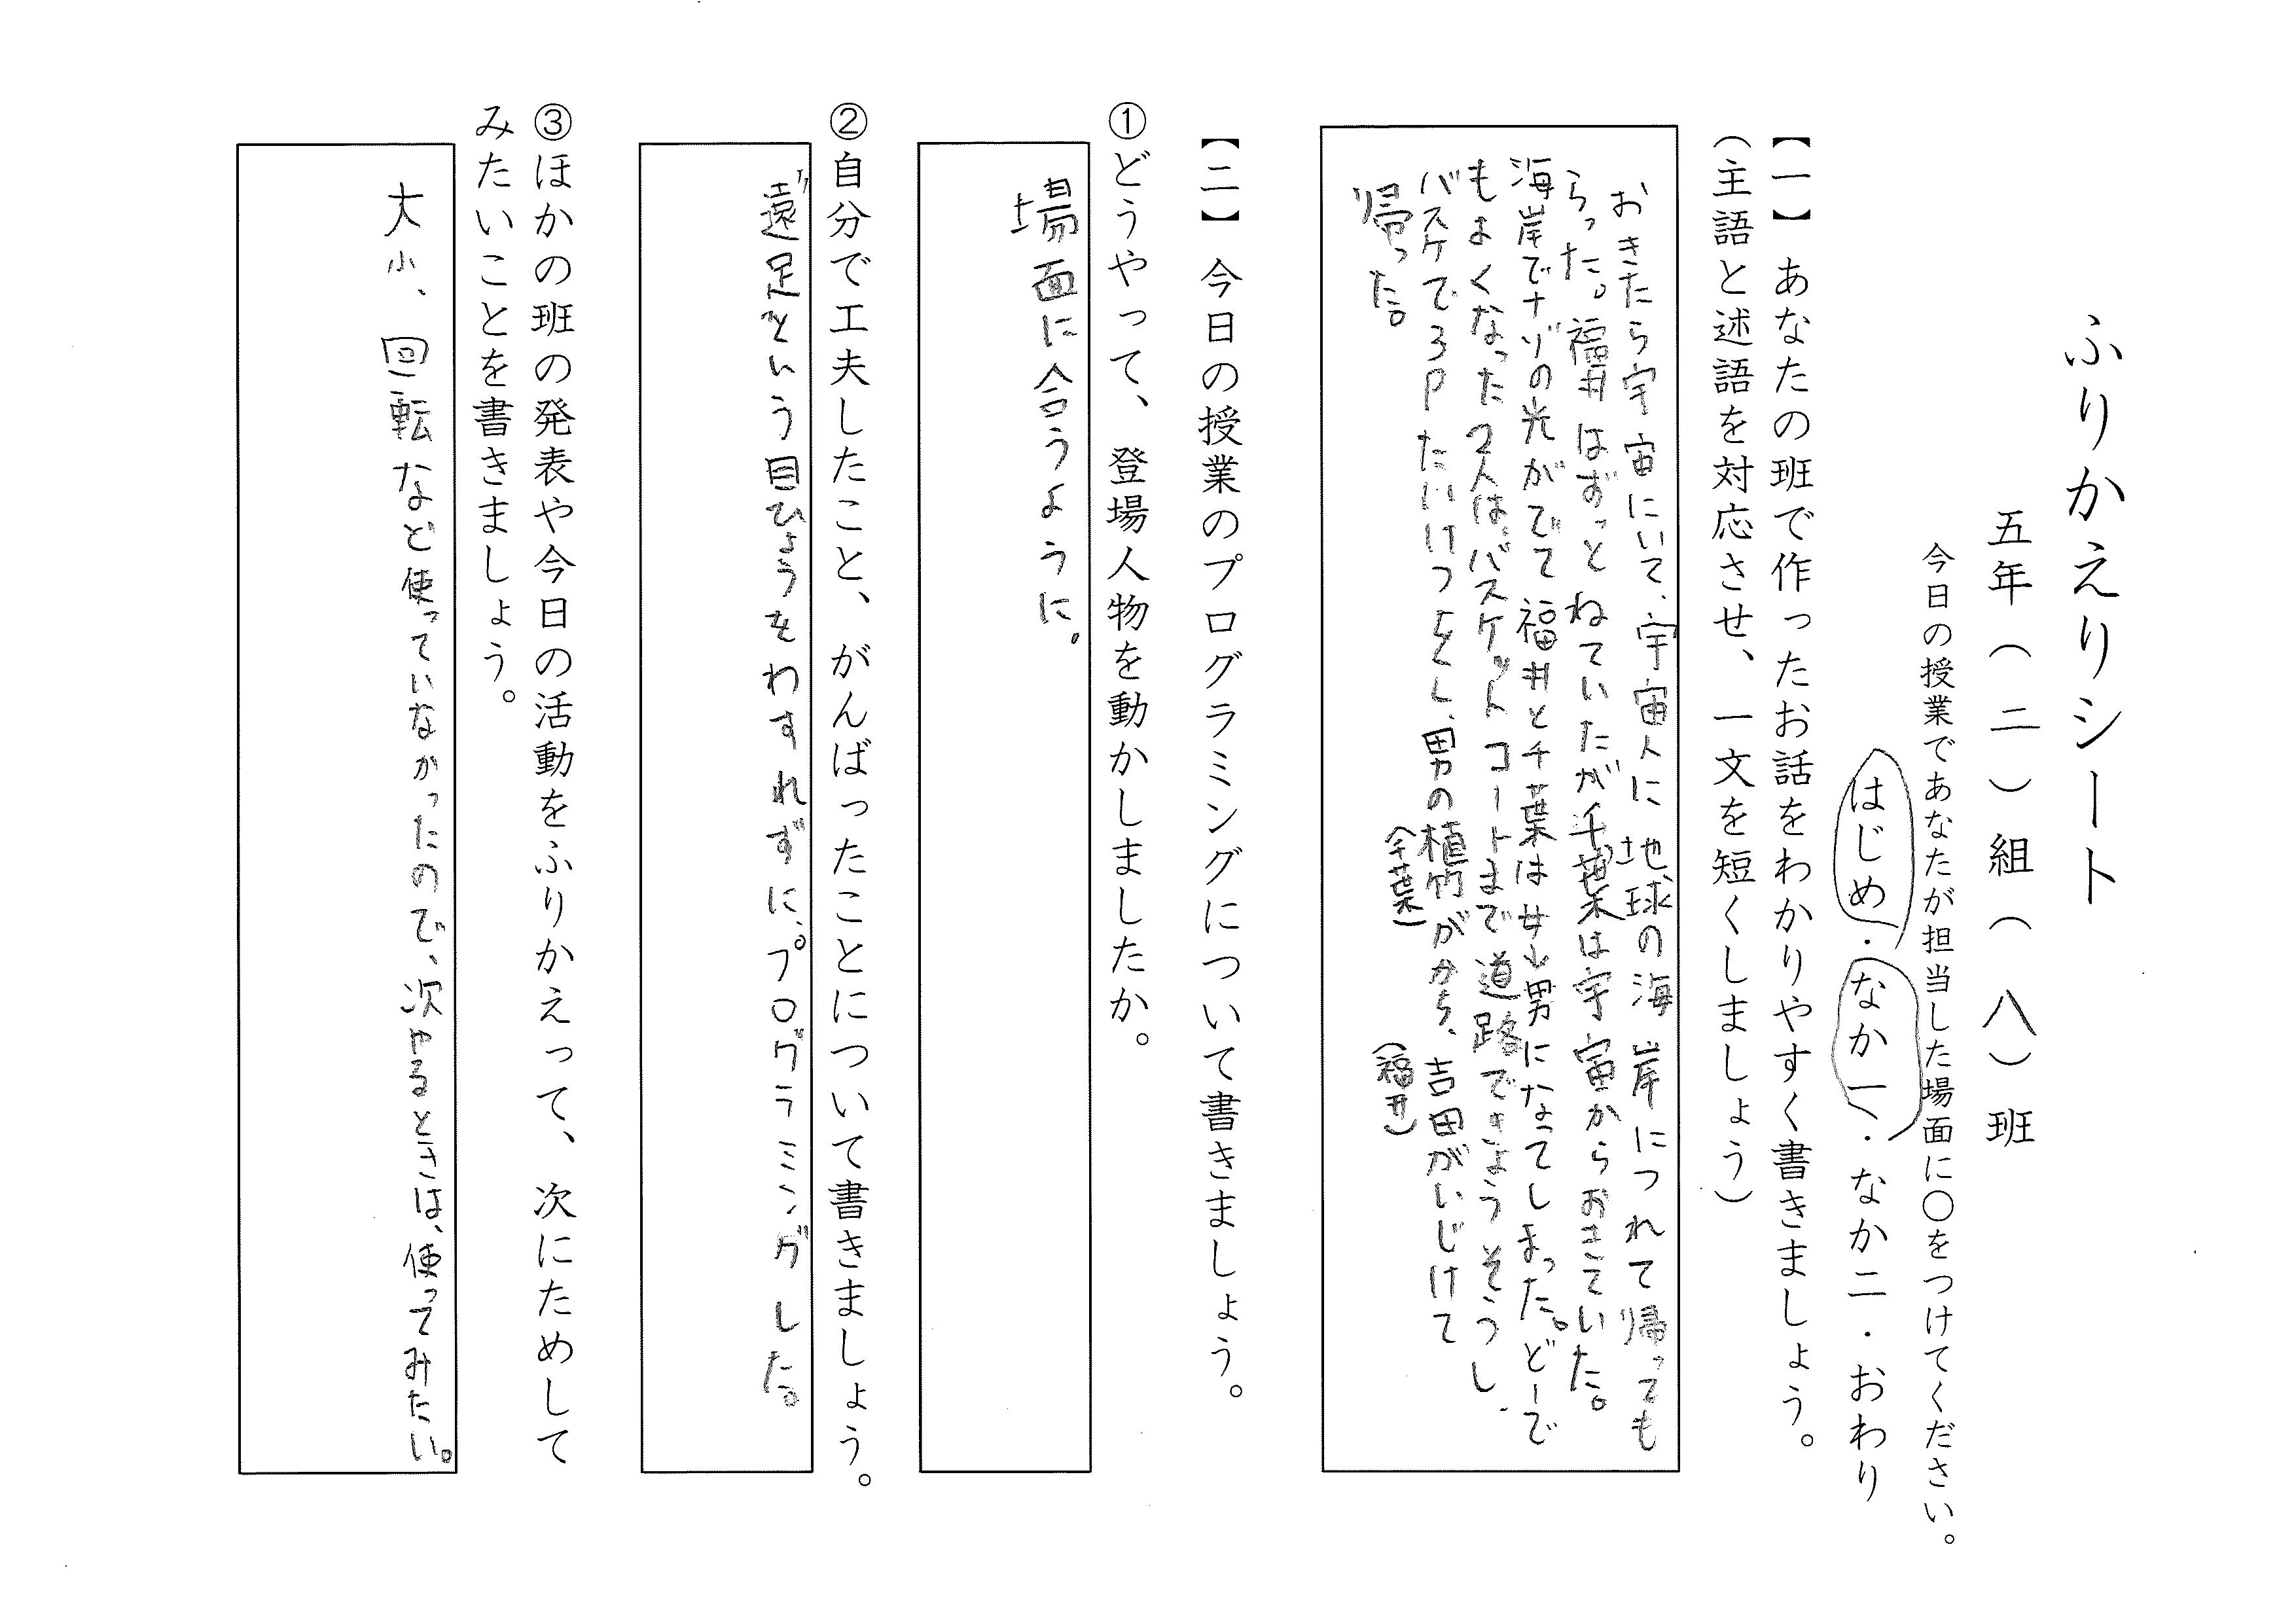 ふりかえりシート
五年（二）組（八）班
今日の授業であなたが担当した場面に○をつけてください。
はじめ・なか一・なか二・おわり
【一】あなたの班で作ったお話をわかりやすく書きましょう。
（主語と述語を対応させ、一文を短くしましょう）
おきたら宇宙にいて、宇宙人に地球の海岸につれて帰っても
らった。福井はずっとねていたが千葉は宇宙からおきていた。
海岸でナゾの光がでて福井と千葉は女→男になってしまった。どーで
もよくなった2人は、バスケットコートまで道路できょうそうし、
バスケで3Pたいけつをし、男の植竹がかち、吉田がいじけて
(千葉)
(福井)
帰った。
【二】今日の授業のプログラミングについて書きましょう。
①どうやって、登場人物を動かしましたか。
場面に合うように。
②自分で工夫したこと、がんばったことについて書きましょう。
"遠足"という目ひょうをわすれずに、プログラミングした。
③ほかの班の発表や今日の活動をふりかえって、次にためして
みたいことを書きましょう。
大小、回転など使っていなかったので、次やるときは、使ってみたい。